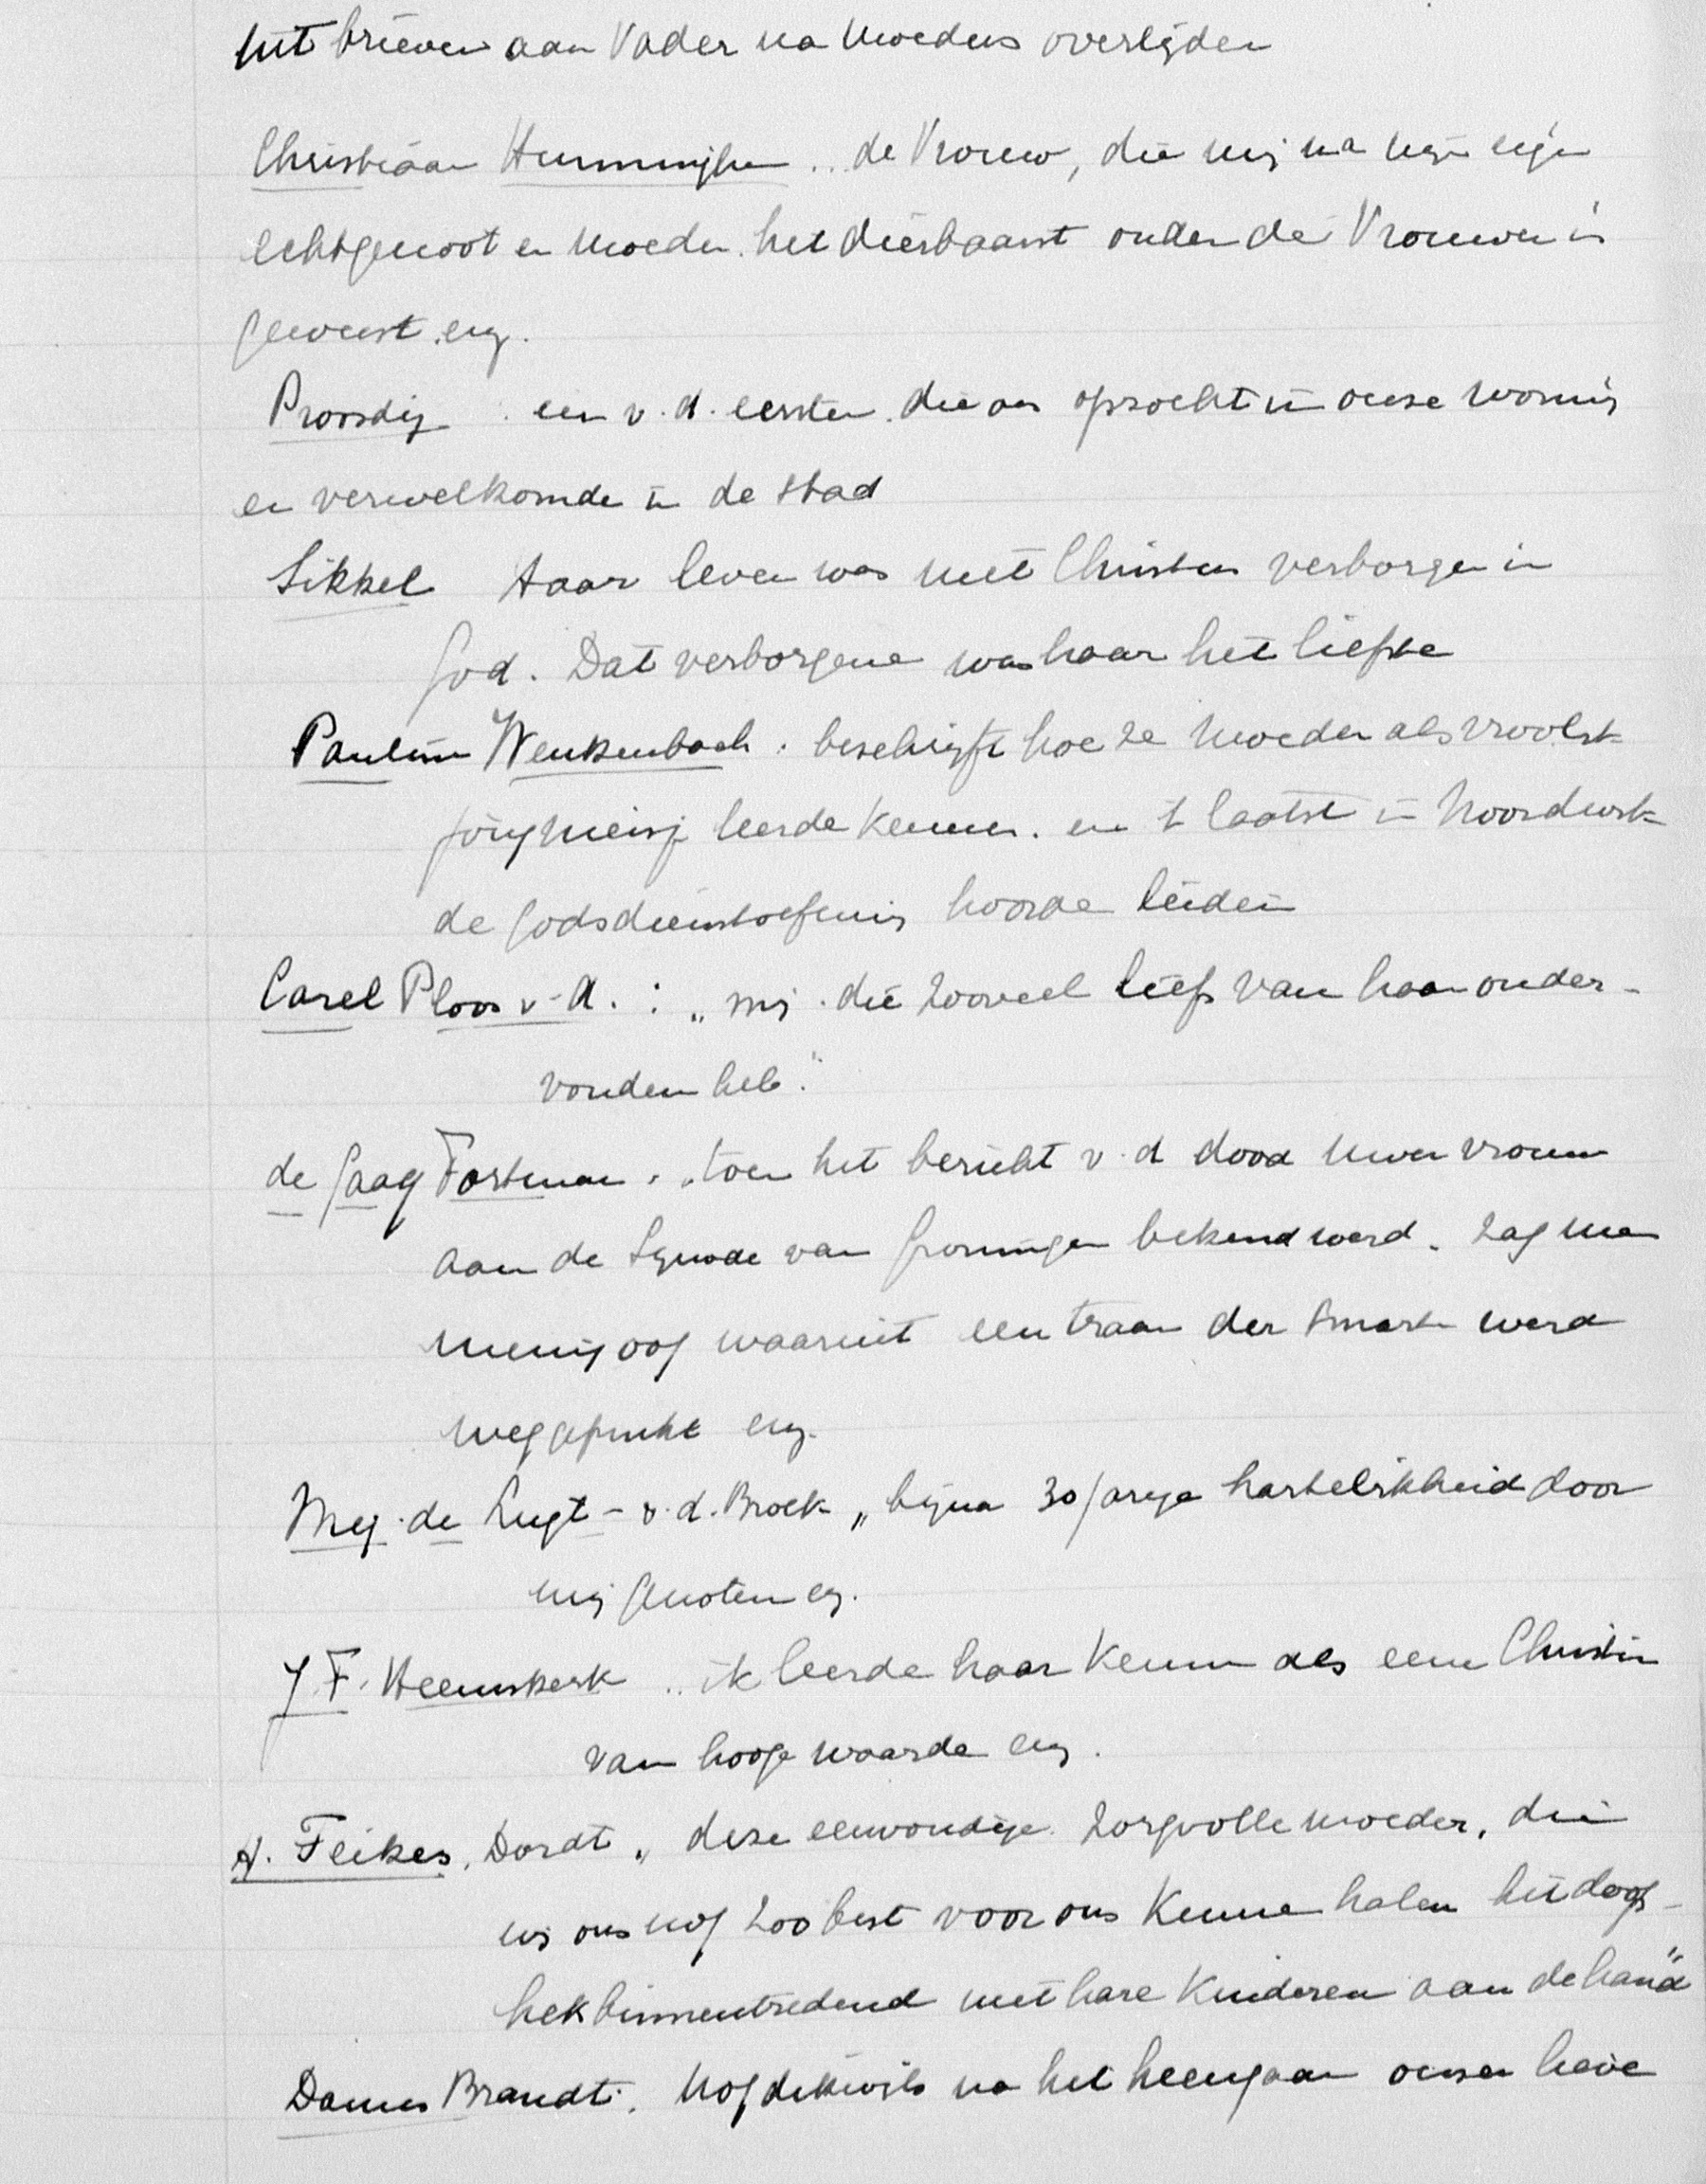 Uit brieven aan Vader na Moeders overlijden
Christiaan Hummingken .. de Vrouw, die mij na mijn eigen
echtgenoot en Moeder het dierbaarst onder de Vrouwen is
geweest enz.
Proosdij een v. d. eersten die ons opzocht in onze woning
en verwelkomde in de stad
Sikkel Haar leven was met Christus verborgen in
God. Dat verborgene was haar het liefste
Pauline Wenkenbach. beschrijft hoe ze Moeder als vroolijk
jong meisje leerde kennen. en 't laatst in Noordwijk
de godsdienstoefening hoorde leiden
Carel Ploos v. A. : „mij die zooveel liefs van haar onder-
vonden heb."
de Gaay Fortman. „toen het bericht v. d dood uwer vrouw
aan de Synode van Groningen bekend werd. zag men
menig oog waaruit een traan der smart werd
weggepinkt enz.
Mej. de Lugt - v. d. Broek „bijna 30 jarige hartelijkheid door
mij genoten enz.
J. F. Heemskerk .. ik leerde haar kennen als eene Christin
van hooge waarde enz.
H. Feikes, Dordt „ deze eenvoudige zorgvolle moeder, die
wij ons nog zoo best voor ons kunnen halen het
hek binnentredend met hare kinderen aan de hand"
Dames Brandt. Nog dikwijls na het heengaan onzer lieve